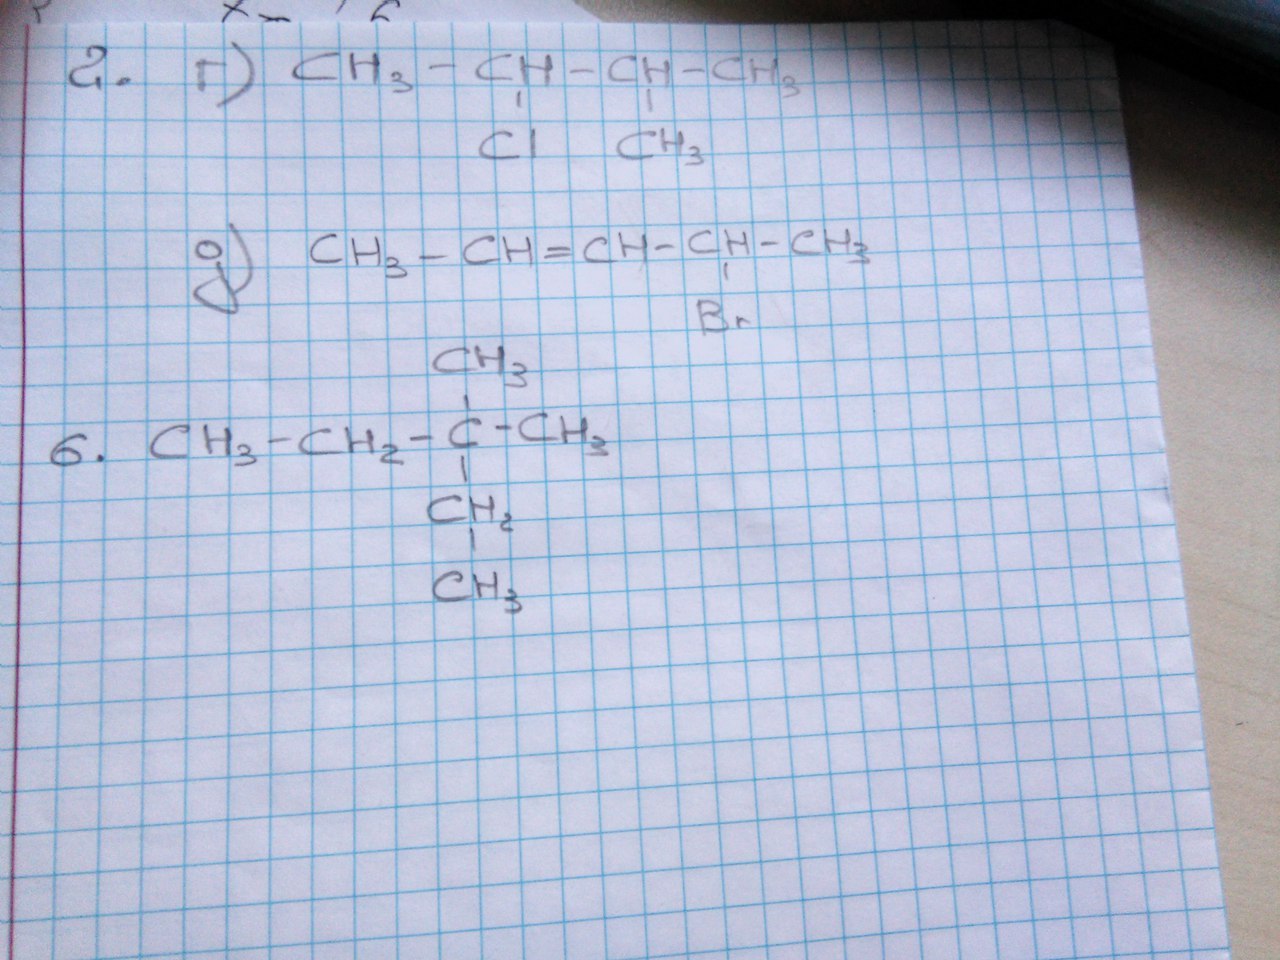 2. г) CH₃ - CH - CH - CH₃
Cl CH₃
g) CH₃ - CH = CH - CH - CH₃
Br
CH₃
6. CH₃ - CH₂ - C - CH₃
CH₂
CH₃